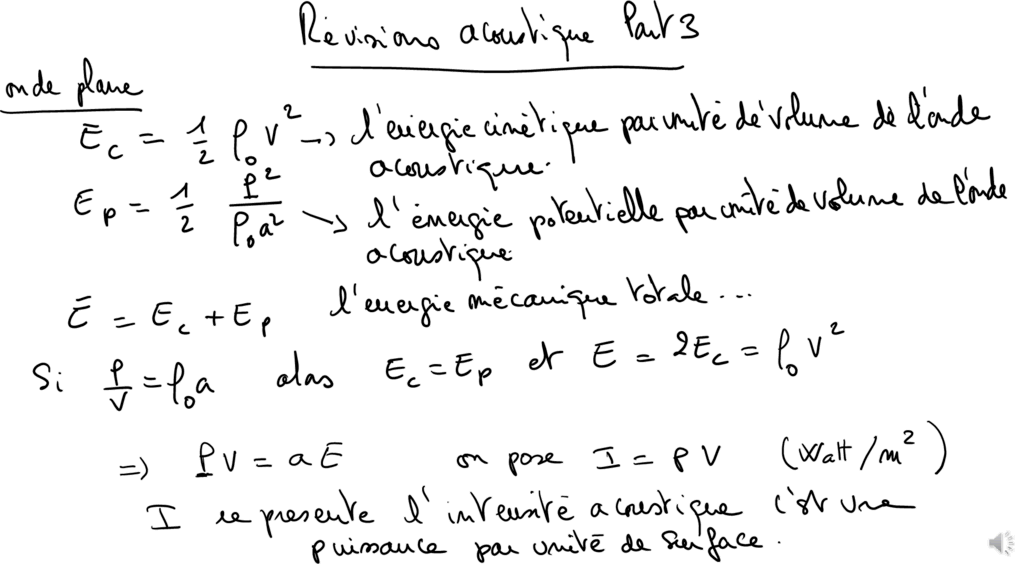 Révisions acoustique Part 3
onde plane
E_c = 1/2 ρ_0 v² → l'énergie cinétique par unité de volume de l'onde
acoustique.
E_p = 1/2 p²/(ρ_0 a²) → l'énergie potentielle par unité de volume de l'onde
acoustique
E = E_c + E_p l'énergie mécanique totale ...
Si p/v = ρ_0 a alors E_c = E_p et E = 2E_c = ρ_0 v²
⇒ p v = a E on pose I = p v (Watt/m²)
I represente l'intensité acoustique c'est une
puissance par unité de surface.